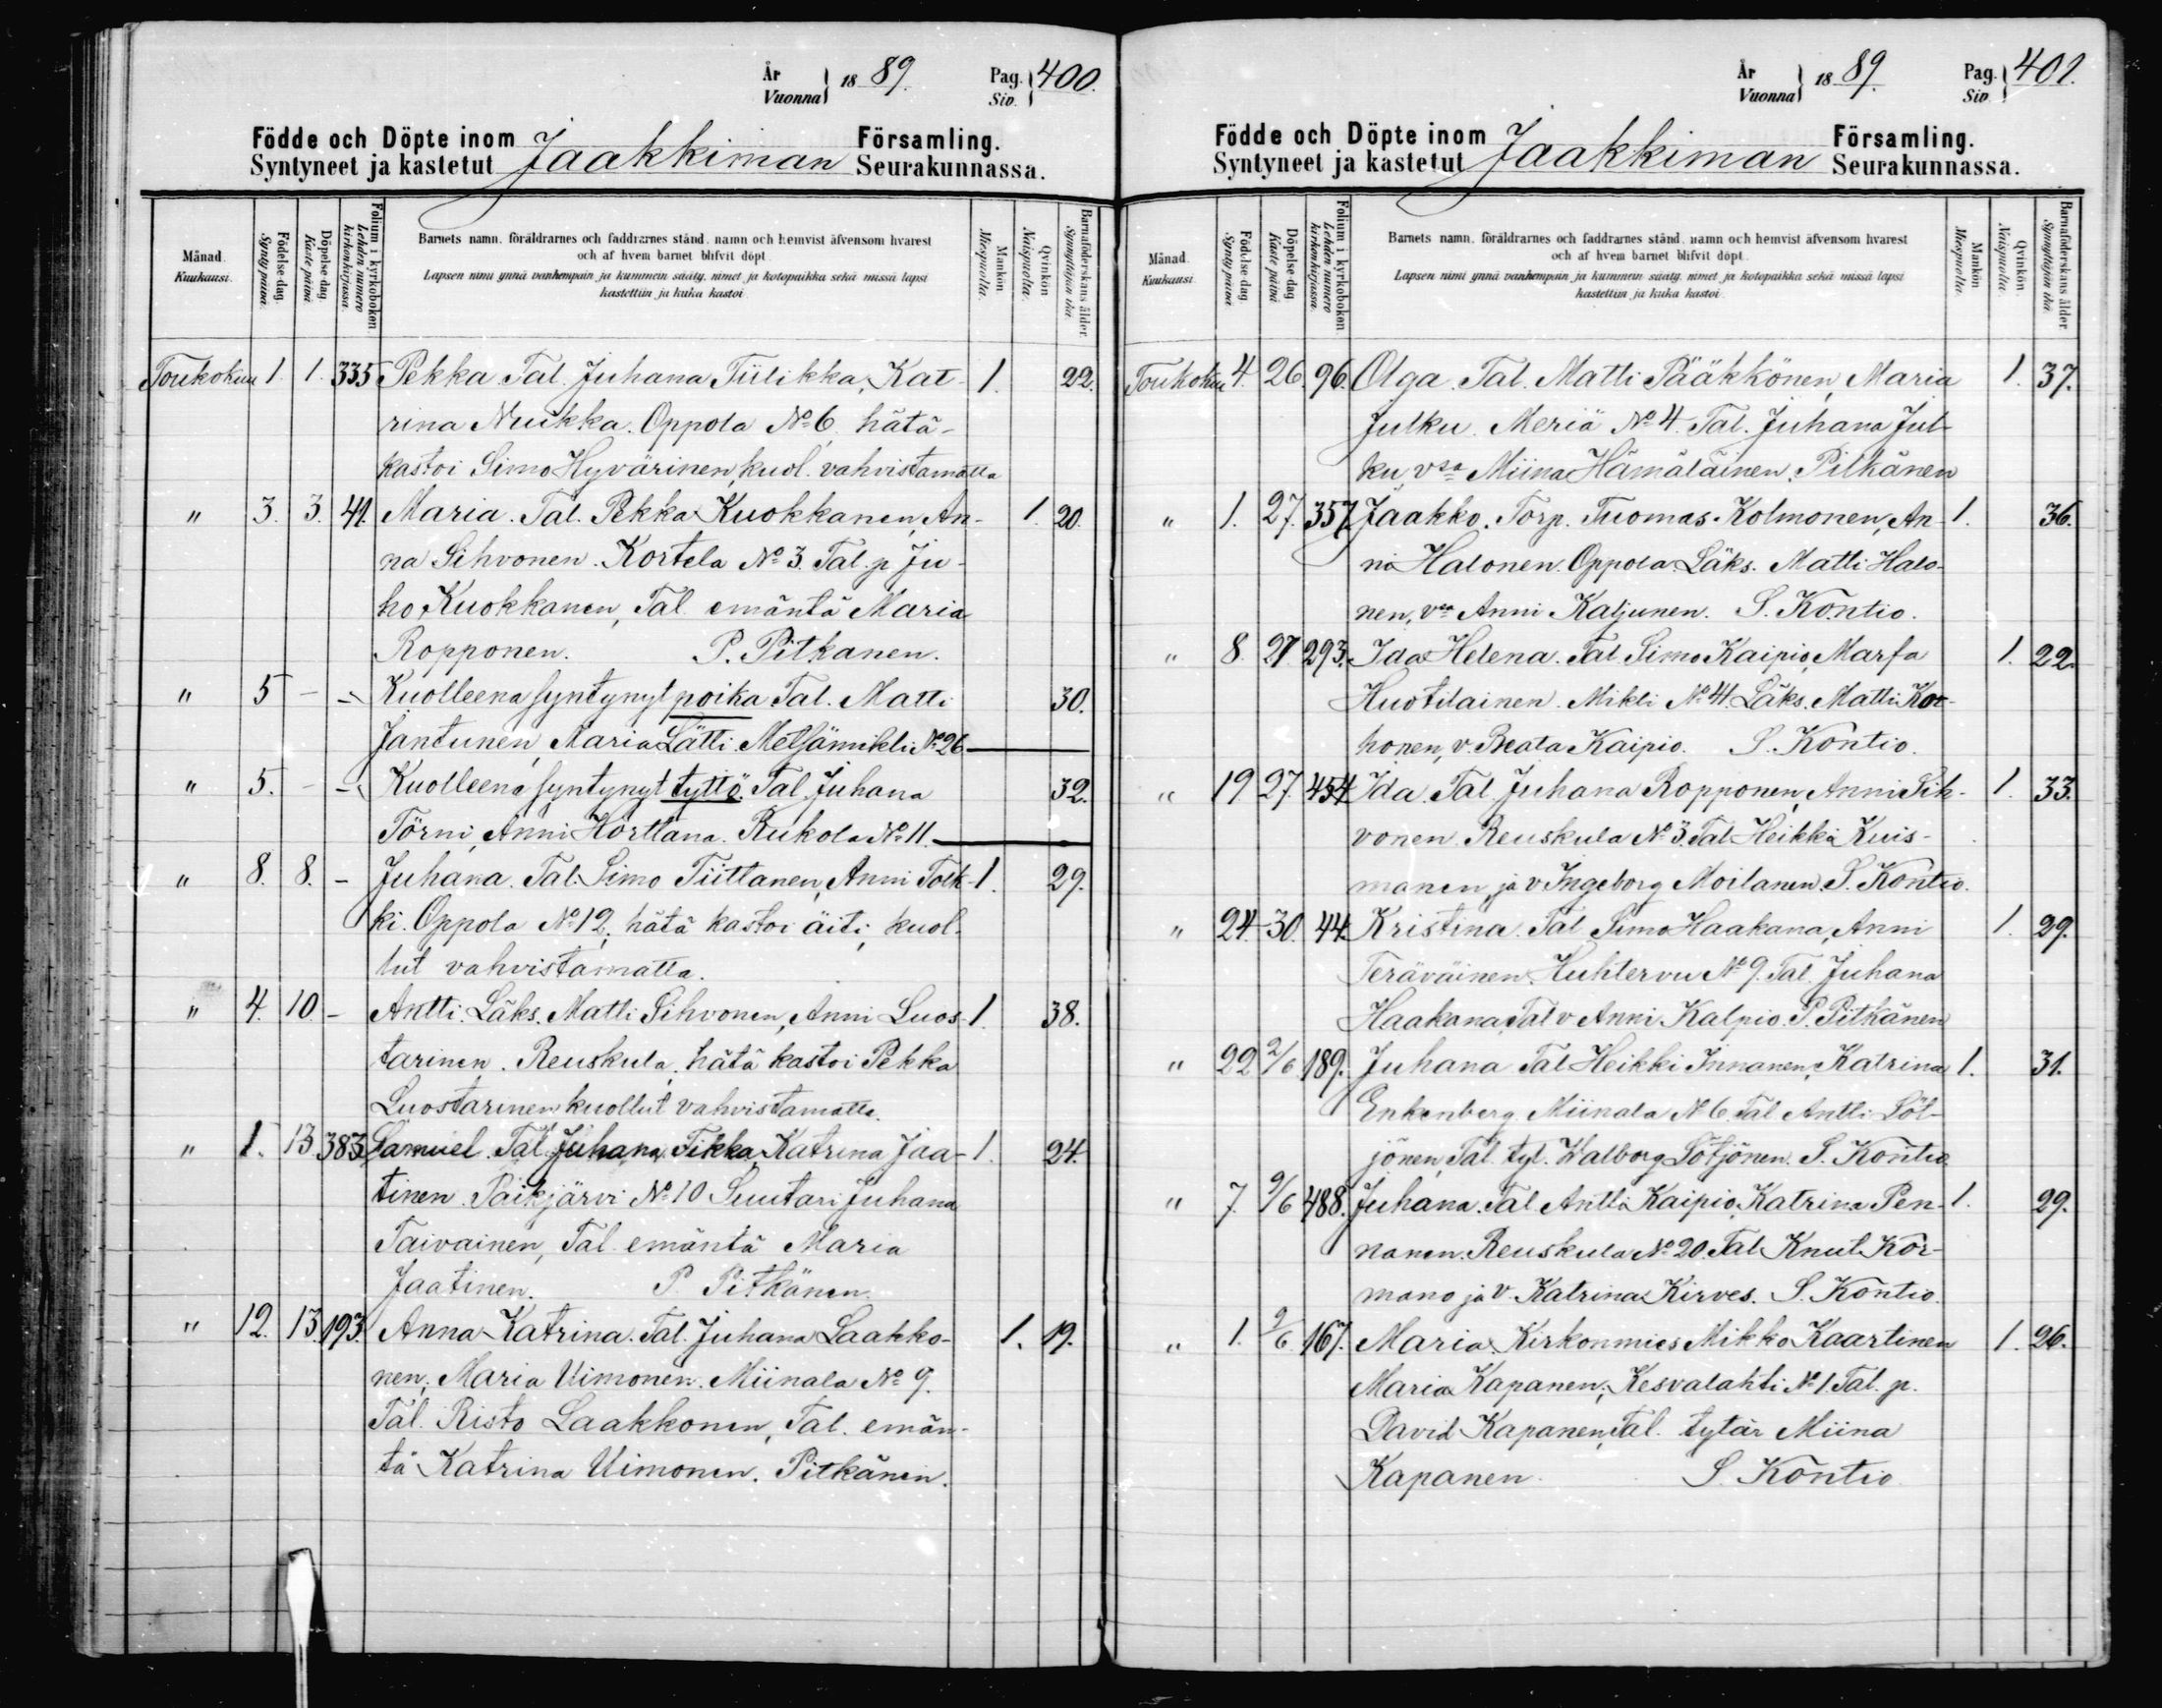 År Vuonna } 1889. Pag. Siv. } 400.
Födde och Döpte inom Jaakkiman Församling.
Syntyneet ja kastetut Seurakunnassa.
Månad. Kuukausi.
Födelse dag. Synty päivä.
Döpelse dag. Kaste päivä.
Folium i kyrkoboken. Lehden numero kirkonkirjassa.
Barnets namn, föräldrarnes och faddrarnes stånd, namn och hemvist äfvensom hvarest
och af hvem barnet blifvit döpt.
Lapsen nimi ynnä vanhempain ja kummein sääty, nimet ja kotopaikka sekä missä lapsi
kastettiin ja kuka kastoi.
Mankön Miespuolta.
Qvinkön Naispuolta.
Barnaföderskans ålder. Synnyttäjän ikä.
Toukokuu 1. 1. 335 Pekka. Tal. Juhana Tiilikka, Kat- 1. 22.
rina Nuukka. Oppola No 6. hätä-
kastoi Simo Hyvärinen, kuol. vahvistamatta
" 3. 3. 41. Maria. Tal. Pekka Kuokkanen, An- 1. 20.
na Sihvonen. Kortela No 3. Tal. p. Ju-
ho Kuokkanen, Tal. emäntä Maria
Ropponen. P. Pitkanen.
" 5 - - Kuolleena syntynyt poika Tal. Matti 30.
Jantunen, Maria Lätti. Metsämikli No 26
" 5. - - Kuolleena syntynyt tyttö. Tal. Juhana 32.
Törni, Anni Hörttana. Rukola No 11.
" 8. 8. - Juhana. Tal. Simo Tiittanen, Anni Tolk- 1. 29.
ki. Oppola No 12, hätä kastoi äiti, kuol-
lut vahvistamatta.
" 4. 10. - Antti. Läks. Matti Sihvonen, Anni Luos- 1. 38.
tarinen. Reuskula, hätä kastoi Pekka
Luostarinen kuollut vahvistamatta.
" 1. 13 383 Samuel. Tal. Juhana Tikka, Katrina Jaa- 1. 24.
tinen. Paikjärvi No 10 Suutari Juhana
Taivainen, Tal. emäntä Maria
Jaatinen. P. Pitkänen.
" 12. 13. 193. Anna Katrina. Tal. Juhana Laakko- 1. 19.
nen, Maria Uimonen. Miinala No 9.
Tal. Risto Laakkonen, Tal. emän-
tä Katrina Uimonen. Pitkänen.
År Vuonna } 1889. Pag. Siv. } 401.
Födde och Döpte inom Jaakkiman Församling.
Syntyneet ja kastetut Seurakunnassa.
Månad. Kuukausi.
Födelse dag. Synty päivä.
Döpelse dag. Kaste päivä.
Folium i kyrkoboken. Lehden numero kirkonkirjassa.
Barnets namn, föräldrarnes och faddrarnes stånd, namn och hemvist äfvensom hvarest
och af hvem barnet blifvit döpt.
Lapsen nimi ynnä vanhempain ja kummein sääty, nimet ja kotopaikka sekä missä lapsi
kastettiin ja kuka kastoi.
Mankön Miespuolta.
Qvinkön Naispuolta.
Barnaföderskans ålder. Synnyttäjän ikä.
Toukokuu 4. 26. 96. Olga. Tal. Matti Pääkkönen, Maria 1. 37.
Julku. Meriä No 4. Tal. Juhana Jul-
ku, vsa Miina Hämäläinen. Pitkänen
" 1. 27. 357. Jaakko. Torp. Tuomas Kolmonen, An- 1. 36.
ni Halonen. Oppola. Läks. Matti Halo-
nen, vsa Anni Kaljunen. S. Kontio.
" 8. 27 293. Ida Helena. Tal. Simo Kaipio, Marfa 1. 22.
Huotilainen. Mikli No 41. Läks. Matti Kor-
honen, v. Beata Kaipio. S. Kontio.
" 19. 27. 454. Ida. Tal. Juhana Ropponen, Anni Sih- 1. 33.
vonen. Reuskula No 3. Tal. Heikki Kuis-
manen, ja v. Ingeborg Moilanen. S. Kontio.
" 24. 30. 44. Kristina. Tal. Simo Haakana, Anni 1. 29.
Teräväinen. Huhtervu No 9. Tal. Juhana
Haakana, Tal v. Anni Kalpio. P. Pitkänen
" 22 2/6 189. Juhana. Tal. Heikki Innanen, Katrina 1. 31.
Enkenberg. Miinala No 6. Tal. Antti Söt-
jönen, Tal. tyt. Walborg Sötjönen. S. Kontio.
" 7. 9/6 488. Juhana. Tal. Antti Kaipio, Katrina Pen- 1. 29.
nanen. Reuskula No 20. Tal. Knut Kor-
mano ja v. Katrina Kirves. S. Kontio.
" 1. 9/6 167. Maria. Kirkonmies Mikko Kaartinen 1. 26.
Maria Kapanen, Kesvalahti No 1. Tal. p.
David Kapanen, Tal. tytär Miina
Kapanen. S. Kontio